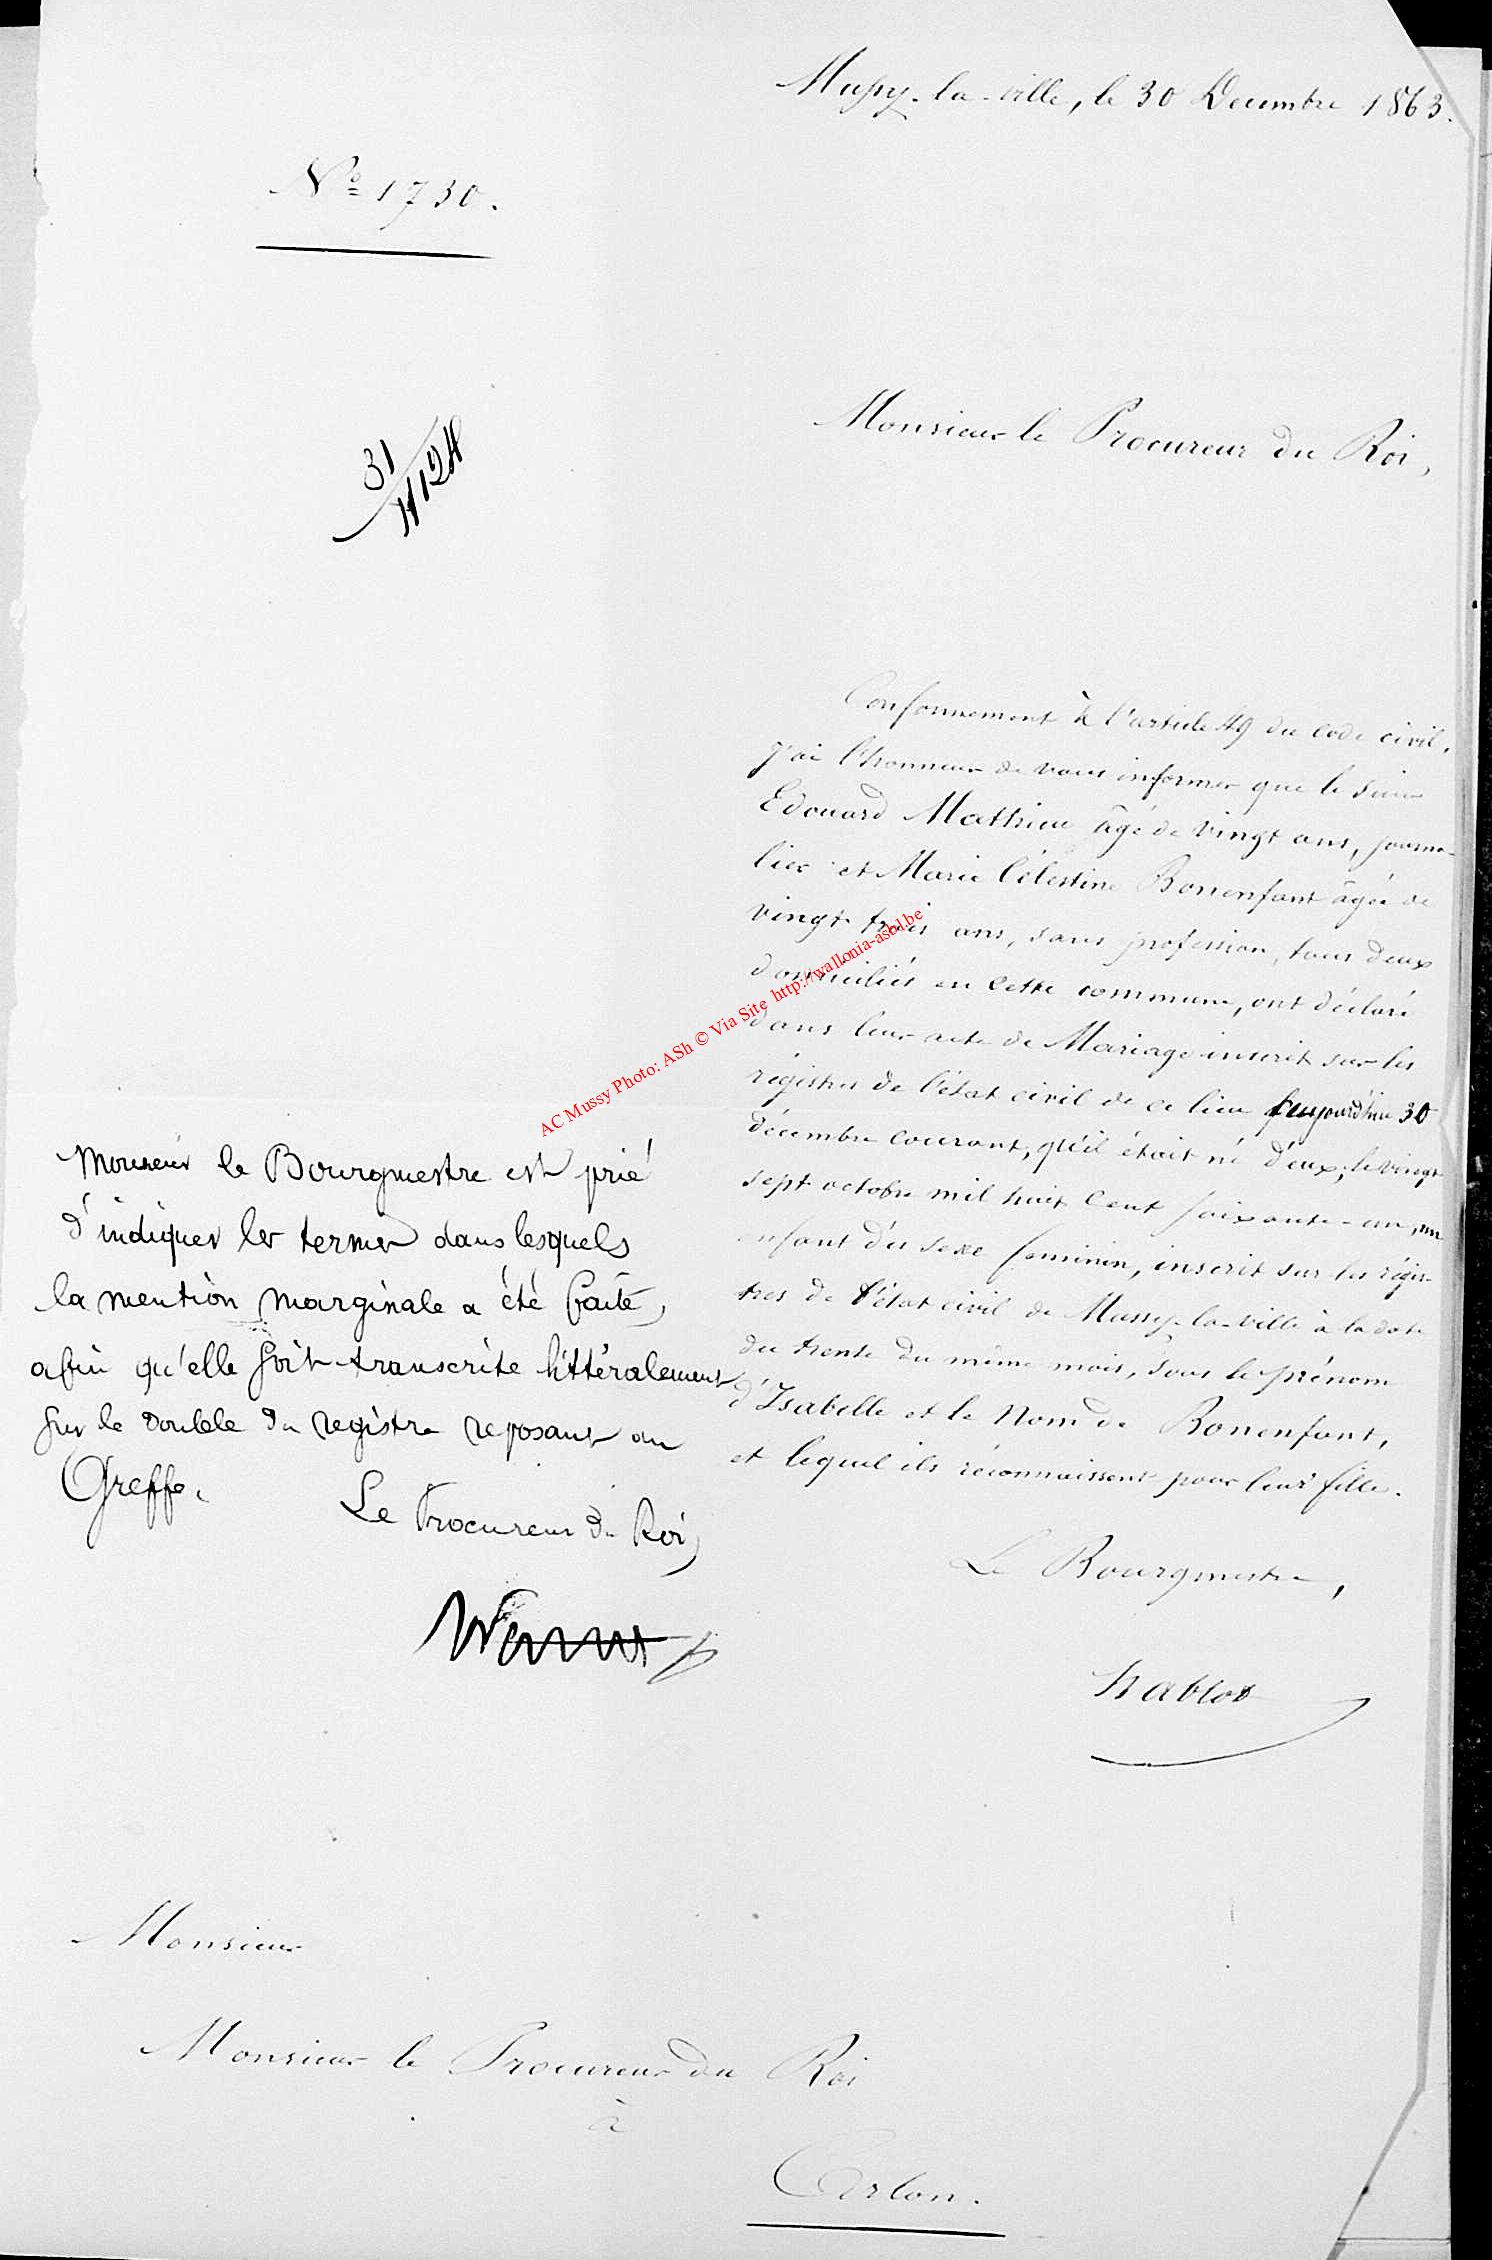 Mussy-la-ville, le 30 Decembre 1863.
Nº 1730.
31
Monsieur le Procureur du Roi,
Conformement à l'article 49 du code civil,
j'ai l'honneur de vous informer que le sieur
Edouard Mathieu âgé de vingt ans, journa-
lier et Marie Célestine Bonenfant âgée de
vingt trois ans, sans profession, tous deux
domiciliés en cette commune, ont déclaré
dans leur acte de Mariage inscrit sur les
régistres de l'état civil de ce lieu aujourd'hui 30
décembre courant, qu'il était né d'eux, le vingt
sept octobre mil huit cent soixante-un, un
enfant du sexe feminin, inscrit sur les régis-
tres de l'état civil de Mussy-la-ville à la date
du trente du même mois, sous le prénom
d'Isabelle et le Nom de Bonenfant,
et lequel ils réconnaissent pour leur fille.
Le Bourgmestre,
Hablot
Monsieur le Bourgmestre est prié
d'indiquer les termes dans lesquels
la mention marginale a été faite,
afin qu'elle soit transcrite littéralement
sur le double du registre reposant au
Greffe.
Le Procureur du Roi,
Monsieur
Monsieur le Procureur du Roi
à
Arlon.
AC Mussy Photo: ASh © Via Site http://wallonia-asbl.be